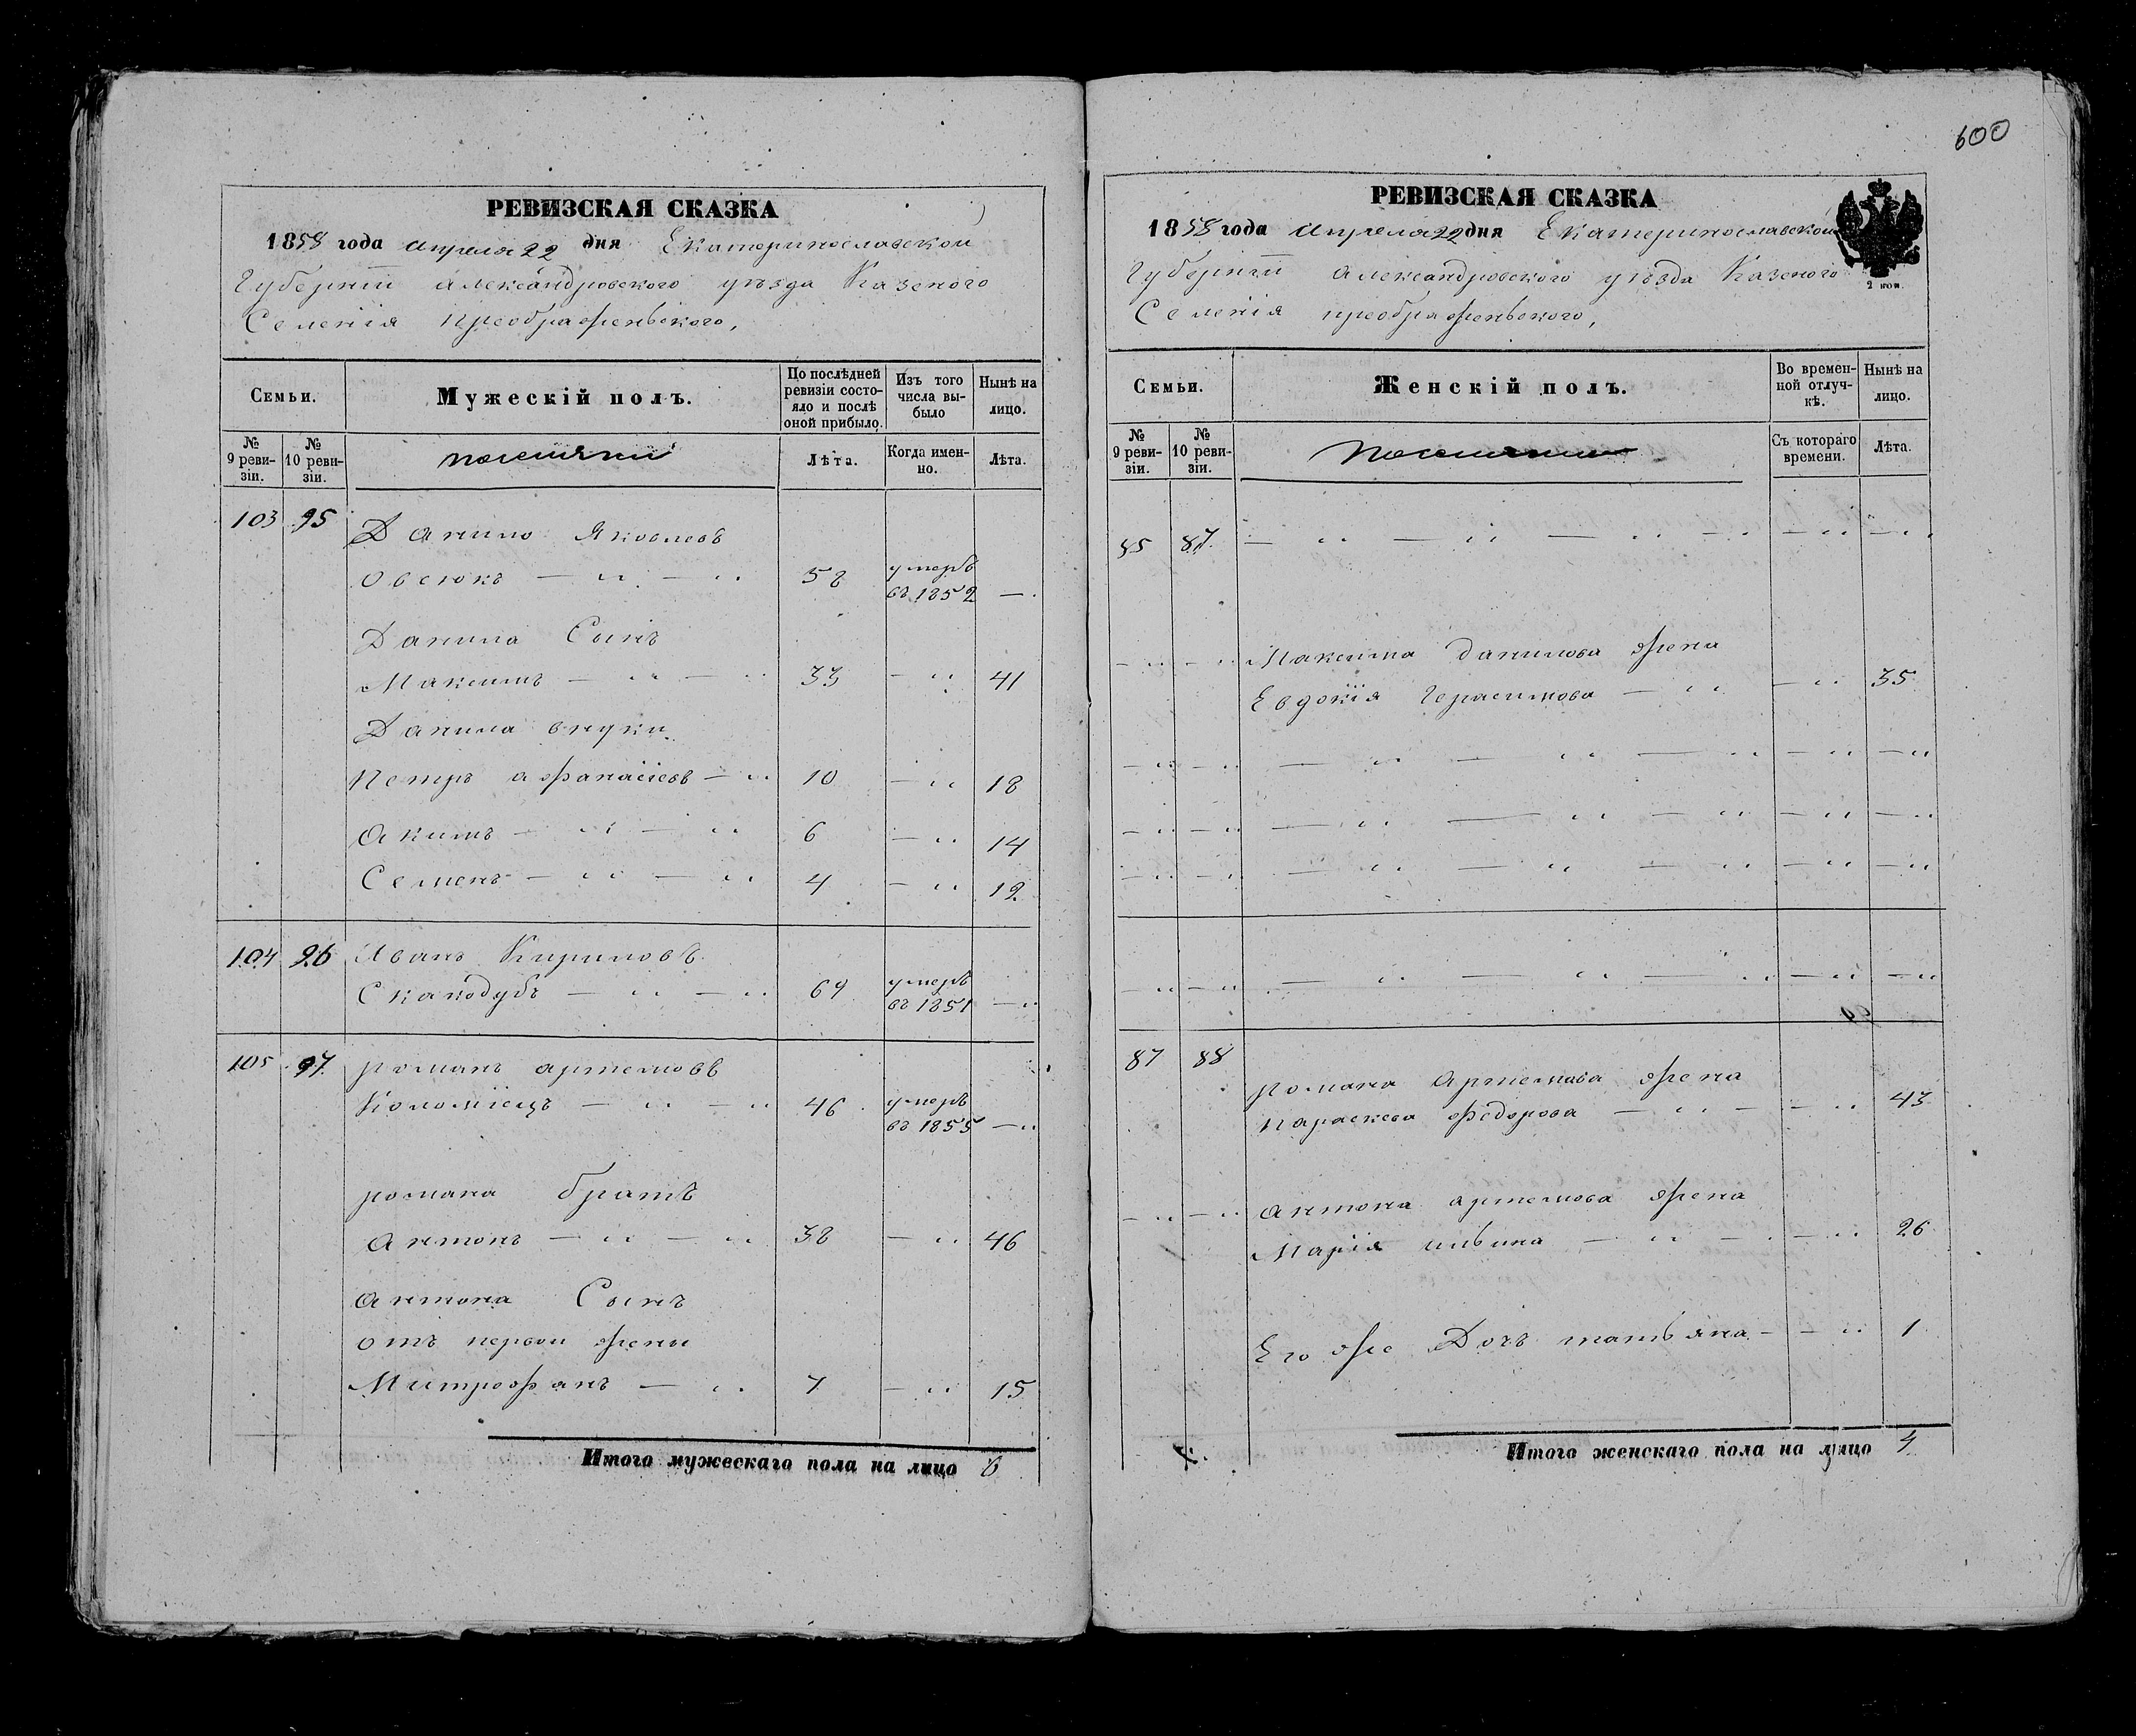 600
РЕВИЗСКАЯ СКАЗКА
1858 года апреля 22 дня Екатеринославской
Губернїи александровского уѣзда Казеного
Селенія преображеньского,
Семьи.
Мужескій полъ.
По послѣдней ревизіи состояло и послѣ оной прибыло.
Изъ того числа выбыло
Нынѣ на лицо.
№ 9 ревизіи.
№ 10 ревизіи.
поселяни
Лѣта.
Когда именно.
Лѣта.
103 95 Данило Яковлевъ
Овсюкъ — " — " 58 умеръ въ 1852 —
Данила Сынъ
Максимъ — " — " 33 — " 41
Данила внуки
Петръ афанасіевъ — " 10 — " 18
Акимъ — " — " 6 — " 14
Семенъ — " — " 4 — " 12
104 96 Иванъ Кириловъ
Скакодубъ — " — " 69 умеръ въ 1851 — "
105 97 романъ артемовъ
Коломіецъ — " — " 46 умеръ въ 1855 — "
романа братъ
Антонъ — " — " 38 — " 46
Антона Сынъ
отъ первои жены
Митрофанъ — " 7 — " 15
Итого мужескаго пола на лицо 6
РЕВИЗСКАЯ СКАЗКА
1858 года апреля 22 дня Екатеринославской
Губернїи александровского уѣзда Казеного
Селенія преображеньского,
2 коп.
Семьи.
Женскій полъ.
Во временной отлучкѣ.
Нынѣ на лицо.
№ 9 ревизіи.
№ 10 ревизіи.
поселянки
Съ котораго времени.
Лѣта.
85 87 — " — " — " — " — " — "
— " — " Максима данилова жена
Евдокія Герасимова — " — " 35
— " — " — " — " — " — " — "
— " — " — " — " — " — " — "
— " — " — " — " — " — " — "
— " — " — " — " — " — " — "
87 88 романа Артемова жена
параскева федорова — " — — " 43
— " — " Антона артемова жена
Марія ильина — " — — " 26
Его же Дочь татьяна — — " 1
Итого женскаго пола на лицо 4